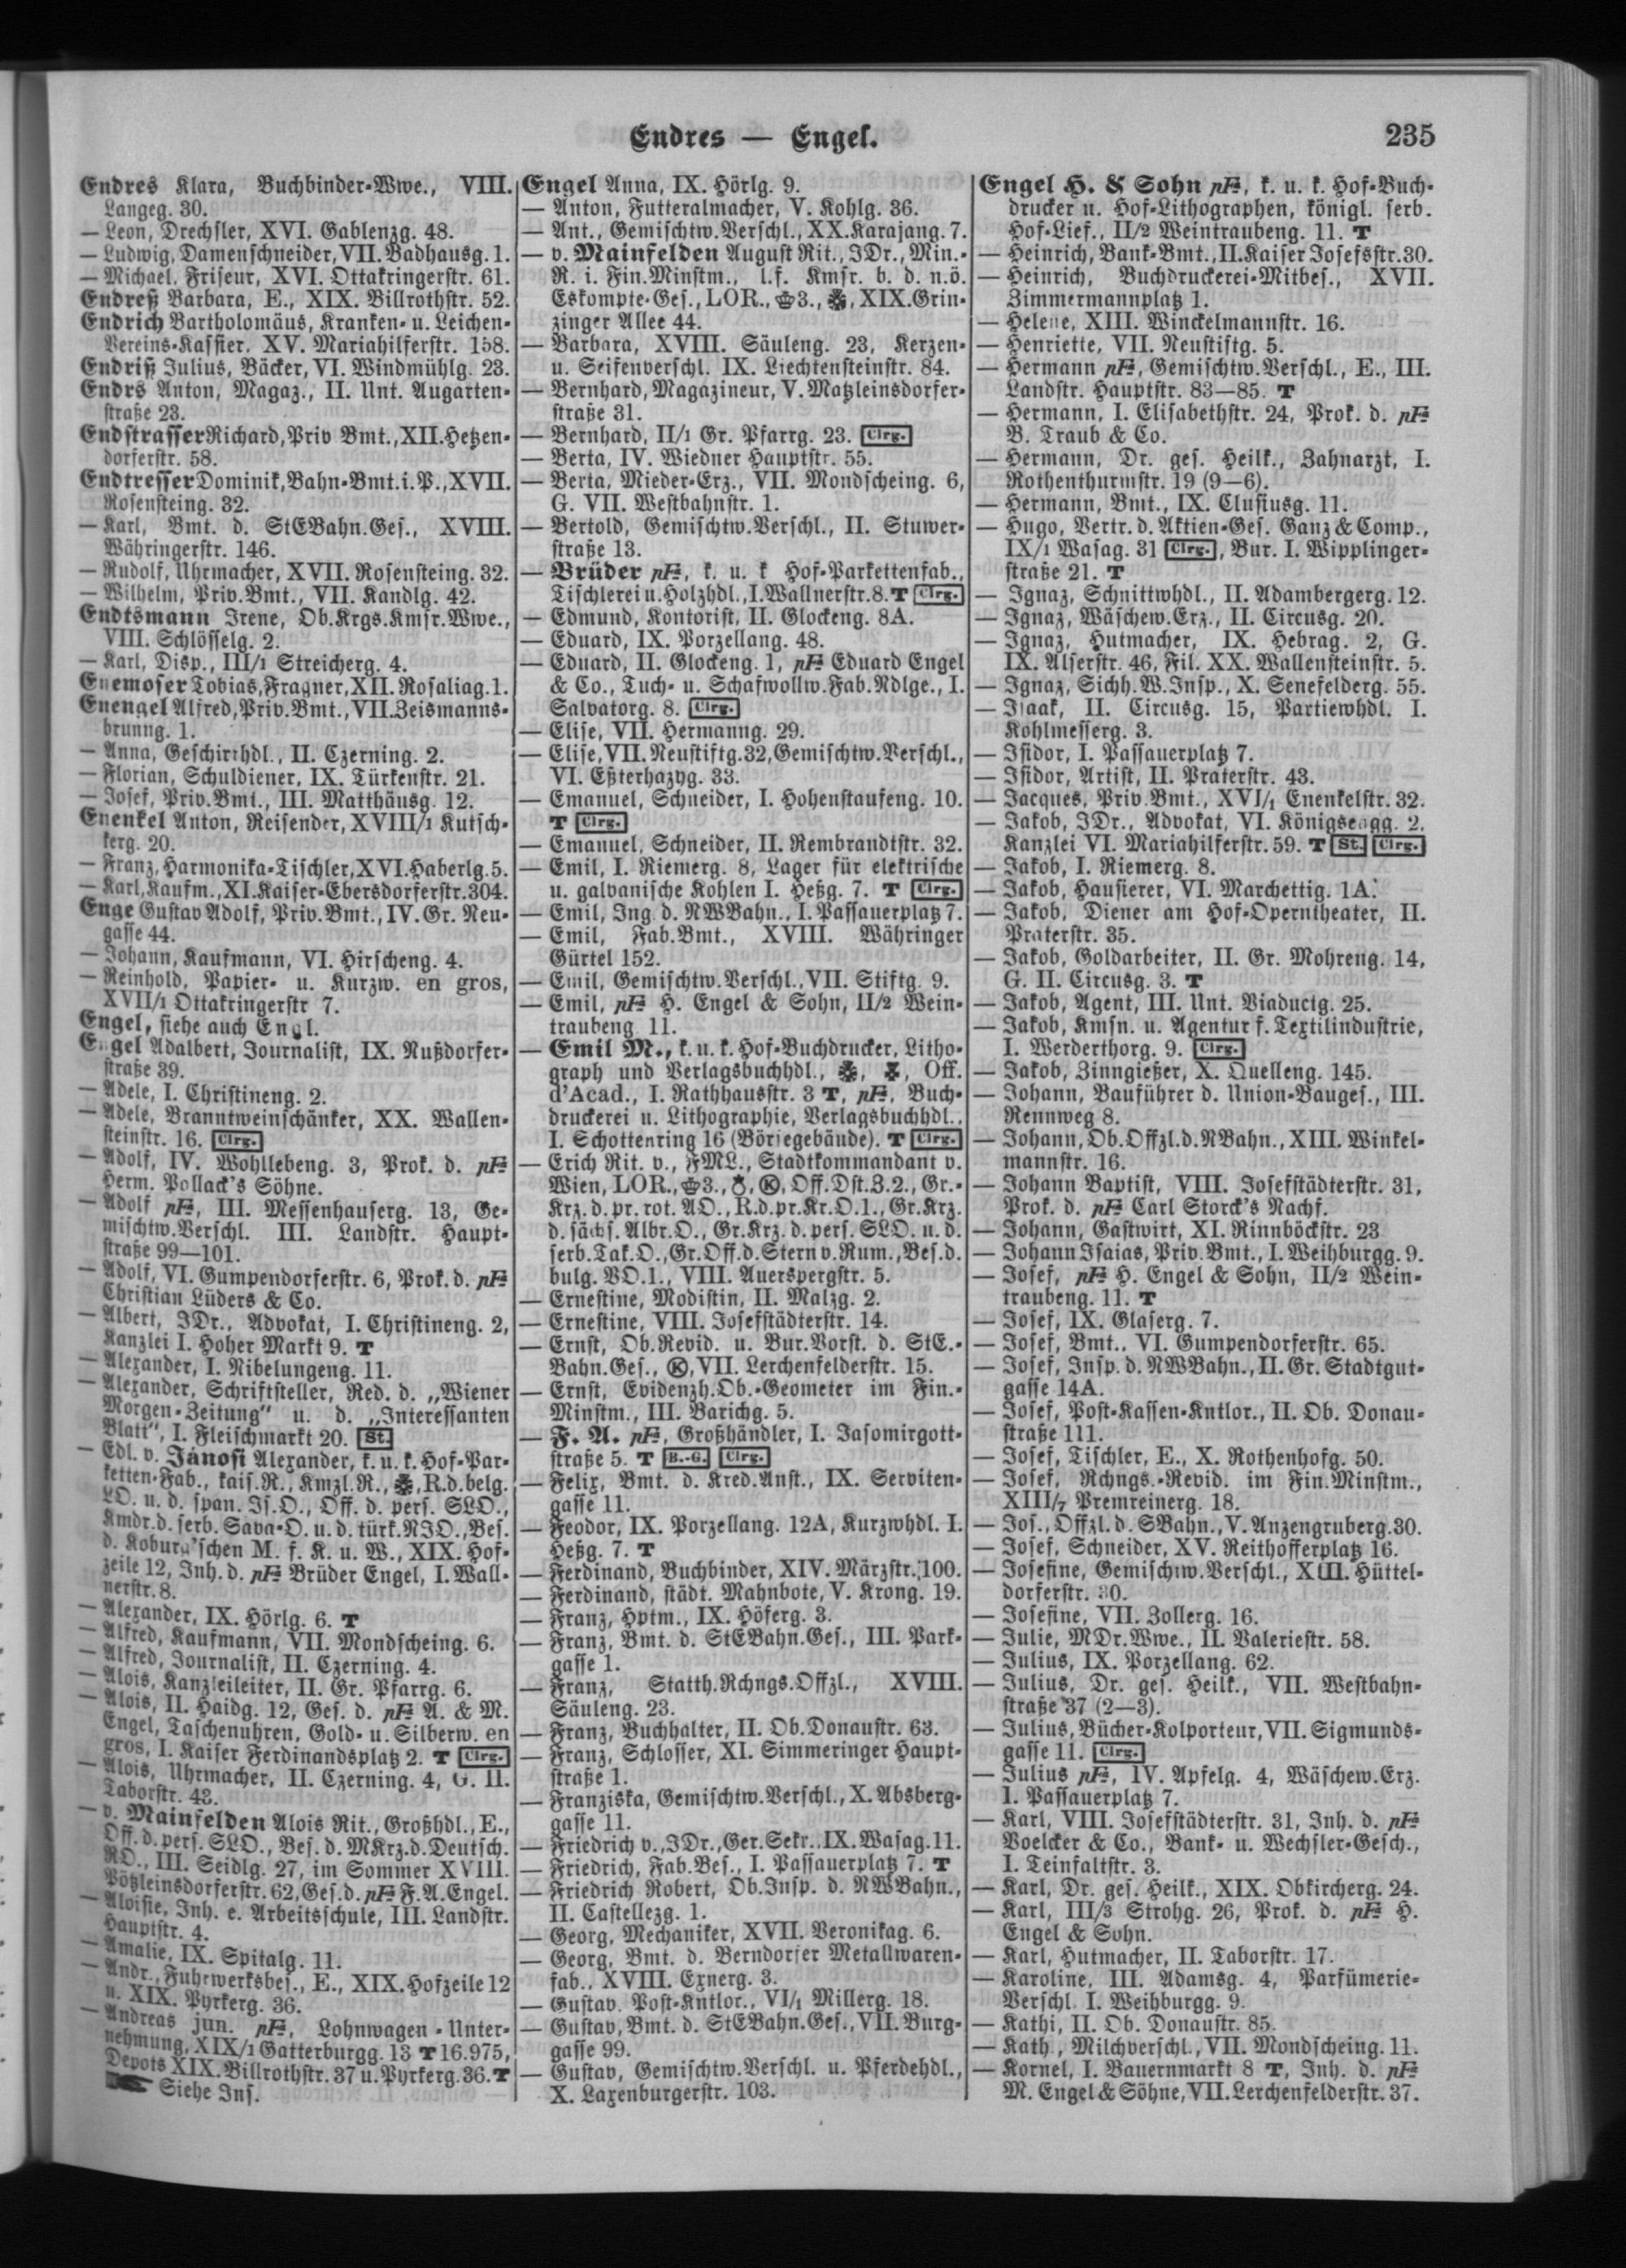 Endres — Engel.
235
Endres Klara, Buchbinder-Wwe., VIII.
Langeg. 30.
— Leon, Drechsler, XVI. Gablenzg. 48.
— Ludwig, Damenschneider, VII. Badhausg. 1.
— Michael, Friseur, XVI. Ottakringerstr. 61.
Endreß Barbara, E., XIX. Billrothstr. 52.
Endrich Bartholomäus, Kranken- u. Leichen-
Vereins-Kassier, XV. Mariahilferstr. 158.
Endriß Julius, Bäcker, VI. Windmühlg. 23.
Endrs Anton, Magaz., II. Unt. Augarten-
straße 23.
Endstrasser Richard, Priv Bmt., XII. Hetzen-
dorferstr. 58.
Endtresser Dominik, Bahn-Bmt. i. P., XVII.
Rosensteing. 32.
— Karl, Bmt. d. StEBahn.Ges., XVIII.
Währingerstr. 146.
— Rudolf, Uhrmacher, XVII. Rosensteing. 32.
— Wilhelm, Priv.Bmt., VII. Kandlg. 42.
Endtsmann Irene, Ob.Krgs.Kmsr.Wwe.,
VIII. Schlösselg. 2.
— Karl, Disp., III/1 Streicherg. 4.
Enemoser Tobias, Fragner, XII. Rosaliag. 1.
Enengel Alfred, Priv.Bmt., VII. Zeismanns-
brunng. 1.
— Anna, Geschirrhdl., II. Czerning. 2.
— Florian, Schuldiener, IX. Türkenstr. 21.
— Josef, Priv.Bmt., III. Matthäusg. 12.
Enenkel Anton, Reisender, XVIII/1 Kutsch-
kerg. 20.
— Franz, Harmonika-Tischler, XVI. Haberlg. 5.
— Karl, Kaufm., XI. Kaiser-Ebersdorferstr. 304.
Enge Gustav Adolf, Priv.Bmt., IV. Gr. Neu-
gasse 44.
— Johann, Kaufmann, VI. Hirscheng. 4.
— Reinhold, Papier- u. Kurzw. en gros,
XVII/1 Ottakringerstr 7.
Engel, siehe auch Engl.
Engel Adalbert, Journalist, IX. Nußdorfer-
straße 39.
— Adele, I. Christineng. 2.
— Adele, Branntweinschänker, XX. Wallen-
steinstr. 16. Clrg.
— Adolf, IV. Wohllebeng. 3, Prok. d. pFa
Herm. Pollack's Söhne.
— Adolf pFa, III. Messenhauserg. 13, Ge-
mischtw.Verschl. III. Landstr. Haupt-
straße 99—101.
— Adolf, VI. Gumpendorferstr. 6, Prok. d. pFa
Christian Lüders & Co.
— Albert, JDr., Advokat, I. Christineng. 2,
Kanzlei I. Hoher Markt 9. T
— Alexander, I. Nibelungeng. 11.
— Alexander, Schriftsteller, Red. d. „Wiener
Morgen-Zeitung" u. d. „Interessanten
Blatt", I. Fleischmarkt 20. St.
— Edl. v. Jánosi Alexander, k. u. k. Hof-Par-
ketten-Fab., kais.R., Kmzl.R., R.d.belg.
LO. u. d. span. Is.O., Off. d. pers. SLO.,
Kmdr.d. serb. Sava-O. u. d. türk. NJO., Bes.
d. Koburg'schen M. f. K. u. W., XIX. Hof-
zeile 12, Inh. d. pFa Brüder Engel, I. Wall-
nerstr. 8.
— Alexander, IX. Hörlg. 6. T
— Alfred, Kaufmann, VII. Mondscheing. 6.
— Alfred, Journalist, II. Czerning. 4.
— Alois, Kanzleileiter, II. Gr. Pfarrg. 6.
— Alois, II. Haidg. 12, Ges. d. pFa A. & M.
Engel, Taschenuhren, Gold- u. Silberw. en
gros, I. Kaiser Ferdinandsplatz 2. T Clrg.
— Alois, Uhrmacher, II. Czerning. 4, G. II.
Taborstr. 43.
— v. Mainfelden Alois Rit., Großhdl., E.,
Off. d. pers. SLO., Bes. d. MKrz.d. Deutsch.
RO., III. Seidlg. 27, im Sommer XVIII.
Pötzleinsdorferstr. 62, Ges.d. pFa F. A. Engel.
— Aloisie, Inh. e. Arbeitsschule, III. Landstr.
Hauptstr. 4.
— Amalie, IX. Spitalg. 11.
— Andr., Fuhrwerksbes., E., XIX. Hofzeile 12
u. XIX. Pyrkerg. 36.
— Andreas jun. pFa, Lohnwagen-Unter-
nehmung, XIX/1 Gatterburgg. 13 T 16.975,
Depots XIX. Billrothstr. 37 u. Pyrkerg. 36. T
Siehe Ins.
Engel Anna, IX. Hörlg. 9.
— Anton, Futteralmacher, V. Kohlg. 36.
— Ant., Gemischtw.Verschl., XX. Karajang. 7.
— v. Mainfelden August Rit., JDr., Min.-
R. i. Fin.Minstm., l.f. Kmsr. b. d. n.ö.
Eskompte-Ges., LOR., 3., XIX. Grin-
zinger Allee 44.
— Barbara, XVIII. Säuleng. 23, Kerzen-
u. Seifenverschl. IX. Liechtensteinstr. 84.
— Bernhard, Magazineur, V. Matzleinsdorfer-
straße 31.
— Bernhard, II/1 Gr. Pfarrg. 23. Clrg.
— Berta, IV. Wiedner Hauptstr. 55.
— Berta, Mieder-Erz., VII. Mondscheing. 6,
G. VII. Westbahnstr. 1.
— Bertold, Gemischtw.Verschl., II. Stuwer-
straße 13.
— Brüder pFa, k. u. k Hof-Parkettenfab.,
Tischlerei u. Holzhdl., I. Wallnerstr. 8. T Clrg.
— Edmund, Kontorist, II. Glockeng. 8A.
— Eduard, IX. Porzellang. 48.
— Eduard, II. Glockeng. 1, pFa Eduard Engel
& Co., Tuch- u. Schafwollw.Fab.Ndlge., I.
Salvatorg. 8. Clrg.
— Elise, VII. Hermanng. 29.
— Elise, VII. Neustiftg. 32, Gemischtw.Verschl.,
VI. Eßterhazyg. 33.
— Emanuel, Schneider, I. Hohenstaufeng. 10.
T Clrg.
— Emanuel, Schneider, II. Rembrandtstr. 32.
— Emil, I. Riemerg. 8, Lager für elektrische
u. galvanische Kohlen I. Heßg. 7. T Clrg.
— Emil, Ing. d. NWBahn., I. Passauerplatz 7.
— Emil, Fab.Bmt., XVIII. Währinger
Gürtel 152.
— Emil, Gemischtw.Verschl., VII. Stiftg. 9.
— Emil, pFa H. Engel & Sohn, II/2 Wein-
traubeng 11.
— Emil M., k. u. k. Hof-Buchdrucker, Litho-
graph und Verlagsbuchhdl., Off.
d'Acad., I. Rathhausstr. 3 T, pFa, Buch-
druckerei u. Lithographie, Verlagsbuchhdl.,
I. Schottenring 16 (Börsegebäude). T Clrg.
— Erich Rit. v., FML., Stadtkommandant v.
Wien, LOR., 3., K, Off.Dst.Z.2., Gr.-
Krz. d. pr. rot. AO., R.d.pr.Kr.O.1., Gr.Krz.
d. sächs. Albr.O., Gr.Krz. d. pers. SLO. u. d.
serb.Tak.O., Gr.Off.d.Stern v. Rum., Bes.d.
bulg. VO.1., VIII. Auerspergstr. 5.
— Ernestine, Modistin, II. Malzg. 2.
— Ernestine, VIII. Josefstädterstr. 14.
— Ernst, Ob.Revid. u. Bur.Vorst. d. StE.-
Bahn.Ges., K, VII. Lerchenfelderstr. 15.
— Ernst, Evidenzh.Ob.-Geometer im Fin.-
Minstm., III. Barichg. 5.
— F. A. pFa, Großhändler, I. Jasomirgott-
straße 5. T B.-G. Clrg.
— Felix, Bmt. d. Kred.Anst., IX. Serviten-
gasse 11.
— Feodor, IX. Porzellang. 12A, Kurzwhdl. I.
Heßg. 7. T
— Ferdinand, Buchbinder, XIV. Märzstr. 100.
— Ferdinand, städt. Mahnbote, V. Krong. 19.
— Franz, Hptm., IX. Höferg. 3.
— Franz, Bmt. d. StEBahn.Ges., III. Park-
gasse 1.
— Franz, Statth.Rchngs.Offzl., XVIII.
Säuleng. 23.
— Franz, Buchhalter, II. Ob. Donaustr. 63.
— Franz, Schlosser, XI. Simmeringer Haupt-
straße 1.
— Franziska, Gemischtw.Verschl., X. Absberg-
gasse 11.
— Friedrich v., JDr., Ger.Sekr., IX. Wasag. 11.
— Friedrich, Fab.Bes., I. Passauerplatz 7. T
— Friedrich Robert, Ob.Insp. d. NWBahn.,
II. Castellezg. 1.
— Georg, Mechaniker, XVII. Veronikag. 6.
— Georg, Bmt. d. Berndorfer Metallwaren-
fab., XVIII. Exnerg. 3.
— Gustav, Post-Kntlor., VI/1 Millerg. 18.
— Gustav, Bmt. d. StEBahn.Ges., VII. Burg-
gasse 99.
— Gustav, Gemischtw.Verschl. u. Pferdehdl.,
X. Laxenburgerstr. 103.
Engel H. & Sohn pFa, k. u. k. Hof-Buch-
drucker u. Hof-Lithographen, königl. serb.
Hof-Lief., II/2 Weintraubeng. 11. T
— Heinrich, Bank-Bmt., II. Kaiser Josefsstr. 30.
— Heinrich, Buchdruckerei-Mitbes., XVII.
Zimmermannplatz 1.
— Helene, XIII. Winckelmannstr. 16.
— Henriette, VII. Neustiftg. 5.
— Hermann pFa, Gemischtw.Verschl., E., III.
Landstr. Hauptstr. 83—85. T
— Hermann, I. Elisabethstr. 24, Prok. d. pFa
B. Traub & Co.
— Hermann, Dr. ges. Heilk., Zahnarzt, I.
Rothenthurmstr. 19 (9—6).
— Hermann, Bmt., IX. Clusiusg. 11.
— Hugo, Vertr. d. Aktien-Ges. Ganz & Comp.,
IX/1 Wasag. 31 Clrg., Bur. I. Wipplinger-
straße 21. T
— Ignaz, Schnittwhdl., II. Adambergerg. 12.
— Ignaz, Wäschew.Erz., II. Circusg. 20.
— Ignaz, Hutmacher, IX. Hebrag. 2, G.
IX. Alserstr. 46, Fil. XX. Wallensteinstr. 5.
— Ignaz, Sichh.W.Insp., X. Senefelderg. 55.
— Isaak, II. Circusg. 15, Partiewhdl. I.
Kohlmesserg. 3.
— Isidor, I. Passauerplatz 7.
— Isidor, Artist, II. Praterstr. 43.
— Jacques, Priv.Bmt., XVI/1 Enenkelstr. 32.
— Jakob, JDr., Advokat, VI. Königseggg. 2,
Kanzlei VI. Mariahilferstr. 59. T St. Clrg.
— Jakob, I. Riemerg. 8.
— Jakob, Hausierer, VI. Marchettig. 1A.
— Jakob, Diener am Hof-Operntheater, II.
Praterstr. 35.
— Jakob, Goldarbeiter, II. Gr. Mohreng. 14,
G. II. Circusg. 3. T
— Jakob, Agent, III. Unt. Viaductg. 25.
— Jakob, Kmsn. u. Agentur f. Textilindustrie,
I. Werderthorg. 9. Clrg.
— Jakob, Zinngießer, X. Quelleng. 145.
— Johann, Bauführer d. Union-Bauges., III.
Rennweg 8.
— Johann, Ob.Offzl.d.NBahn., XIII. Winkel-
mannstr. 16.
— Johann Baptist, VIII. Josefstädterstr. 31,
Prok. d. pFa Carl Storck's Nachf.
— Johann, Gastwirt, XI. Rinnböckstr. 23
— Johann Isaias, Priv.Bmt., I. Weihburgg. 9.
— Josef, pFa H. Engel & Sohn, II/2 Wein-
traubeng. 11. T
— Josef, IX. Glaserg. 7.
— Josef, Bmt., VI. Gumpendorferstr. 65.
— Josef, Insp. d. NWBahn., II. Gr. Stadtgut-
gasse 14A.
— Josef, Post-Kassen-Kntlor., II. Ob. Donau-
straße 111.
— Josef, Tischler, E., X. Rothenhofg. 50.
— Josef, Rchngs.-Revid. im Fin.Minstm.,
XIII/7 Premreinerg. 18.
— Jos., Offzl. d. SBahn., V. Anzengruberg. 30.
— Josef, Schneider, XV. Reithofferplatz 16.
— Josefine, Gemischtw.Verschl., XIII. Hüttel-
dorferstr. 30.
— Josefine, VII. Zollerg. 16.
— Julie, MDr.Wwe., II. Valeriestr. 58.
— Julius, IX. Porzellang. 62.
— Julius, Dr. ges. Heilk., VII. Westbahn-
straße 37 (2—3).
— Julius, Bücher-Kolporteur, VII. Sigmunds-
gasse 11. Clrg.
— Julius pFa, IV. Apfelg. 4, Wäschew.Erz.
I. Passauerplatz 7.
— Karl, VIII. Josefstädterstr. 31, Inh. d. pFa
Voelcker & Co., Bank- u. Wechsler-Gesch.,
I. Teinfaltstr. 3.
— Karl, Dr. ges. Heilk., XIX. Obkircherg. 24.
— Karl, III/3 Strohg. 26, Prok. d. pFa H.
Engel & Sohn.
— Karl, Hutmacher, II. Taborstr. 17.
— Karoline, III. Adamsg. 4, Parfümerie-
Verschl. I. Weihburgg. 9.
— Kathi, II. Ob. Donaustr. 85.
— Kath., Milchverschl., VII. Mondscheing. 11.
— Kornel, I. Bauernmarkt 8 T, Inh. d. pFa
M. Engel & Söhne, VII. Lerchenfelderstr. 37.